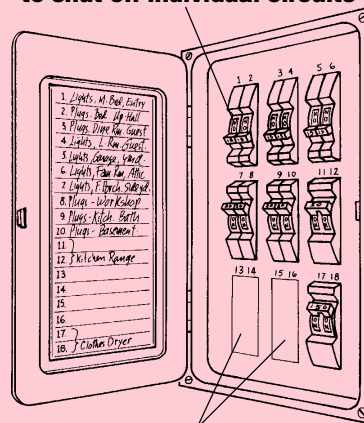 to shut off individual circuits
1. Lights, M. Bed, Entry
2. Plugs, Bed. Up Hall
3. Plugs, Dine Rm. Guest
4. Lights, L. Rm. Guest
5. Lights, Garage, Yard
6. Lights, Fam Rm, Attic
7. Lights, F. Porch,
8. Plugs - Workshop
9. Plugs - Kitch. Bath
10. Plugs - Basement
11.
12. Kitchen Range
13
14.
15.
16.
17.
18. Clothes Dryer
1 2
3 4
5 6
7 8
9 10
11 12
13 14
15 16
17 18